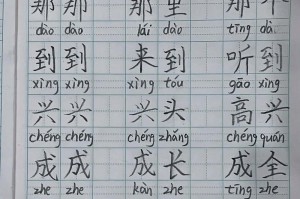 那 那 那 里 那 个
dào dào lái dào tīng dà
到 到 来 到 听 到
xìng xìng xìng tóu gāo xìng
兴 兴 兴 头 高 兴
chéng chéng chéng zhǎng chéng quán
成 成 成 长 成 全
zhe zhe kàn zhe tīng zhe